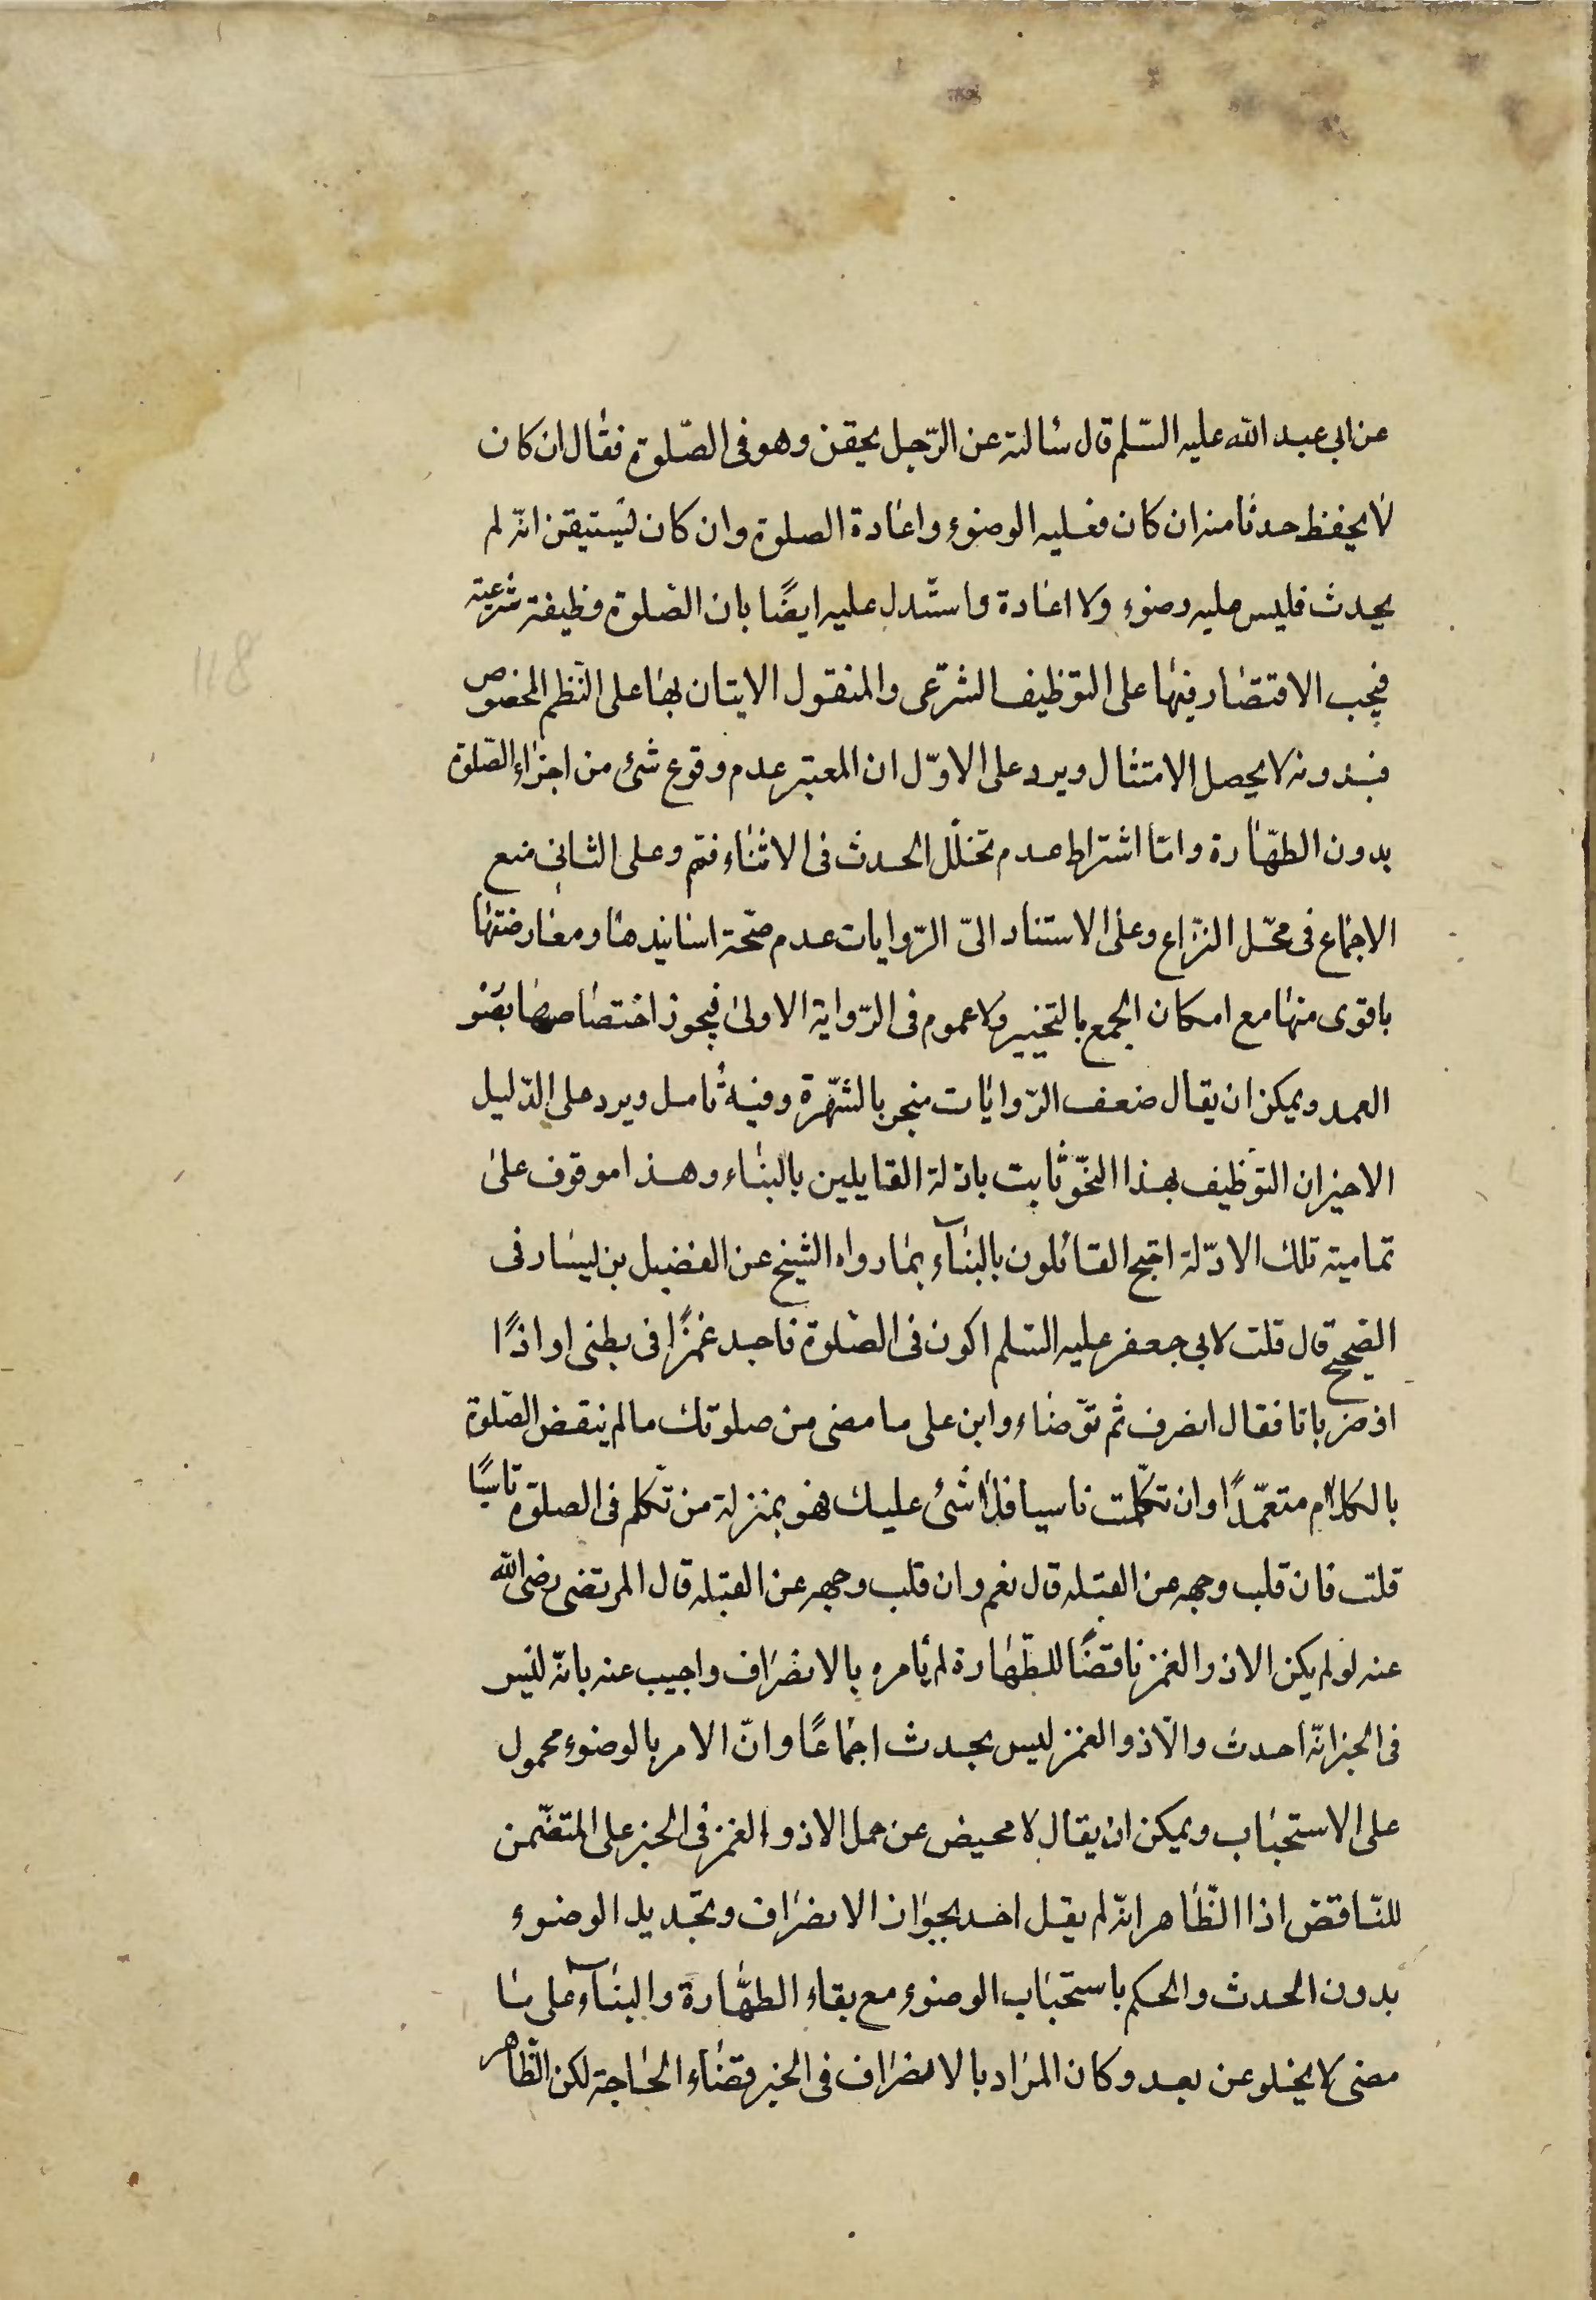 عن ابى عبد الله عليه السّلم قال سألته عن الرّجل يحقن وهو فى الصّلوة فقال ان كان
لا يحفظ حدثا منه ان كان فعليه الوضوء واعادة الصلوة وان كان يستيقن انّه لم
يحدث فليس عليه وضوء ولا اعادة واستدل عليه ايضًا بان الصّلوة وظيفة شرعيّة
فيجب الاقتصار فيها على التوظيف الشرعى والمنقول الايتان بها على النّظم المخصوص
فبدونه لا يحصل الامتثال ويرد على الاوّل ان المعتبر عدم وقوع شئ من اجزاء الصّلوة
بدون الطهّارة وامّا اشتراط عدم تخلّل الحدث فى الاثناء فتم وعلى الثانى منع
الاجماع فى محّل النزاع وعلى الاستناد الى الرّوايات عدم صحّة اسانيدها ومعارضتها
باقوى منها مع امكان الجمع بالتخيير ولا عموم فى الرّواية الاولى فيجوز اختصاصها بصو
العمد ويمكن ان يقال ضعف الرّوايات منجبر بالشهّرة وفيه تأمل ويرد على الدّليل
الاخير ان التوظيف بهذا النحّو ثابت بادلة القايلين بالبناء وهذا موقوف على
تمامية تلك الادّلة احتج القائلون بالبنآء بما رواه الشيخ عن الفضيل بن ليسار فى
الصّحيح قال قلت لابى جعفر عليه السّلم اكون فى الصّلوة فاجد غمزًا فى بطنى او اذًا
اذ ضربانا فقال انصرف ثم توّضاء وابن على ما مضى من صلوتك ما لم ينقض الصّلوة
بالكلام متعمّدًا وان تكلّمت ناسيا فلا شئ عليك فهو بمنزلة من تكلم فى الصلوة ناسيًا
قلت فان قلب وجهه عن القبله قال نعم وان قلب وجهه عن القبله قال المرتضى رضى الله
عنه لو لم يكن الاذ والغمز ناقضًا للطّهارة لم يأمره بالانصراف واجيب عنه بانّه ليس
فى الخبر انّه احدث والاذ والغمز ليس بحدث اجماعًا وانّ الامر بالوضوء محمول
على الاستحباب ويمكن ان يقال لا محيض عن حمل الاذ والغمز فى الخبر على المتضّمن
للنّاقض اذا الظّاهر انّه لم يقل احد بجواز الانصراف وتجّديد الوضوء
بدون الحدث والحكم باستحباب الوضوء مع بقاء الطهّارة والبنآء على ما
مضى لا يخلو عن بعد وكان المراد بالانصراف فى الخبر قضاء الحاجة لكن الظّاهر
118